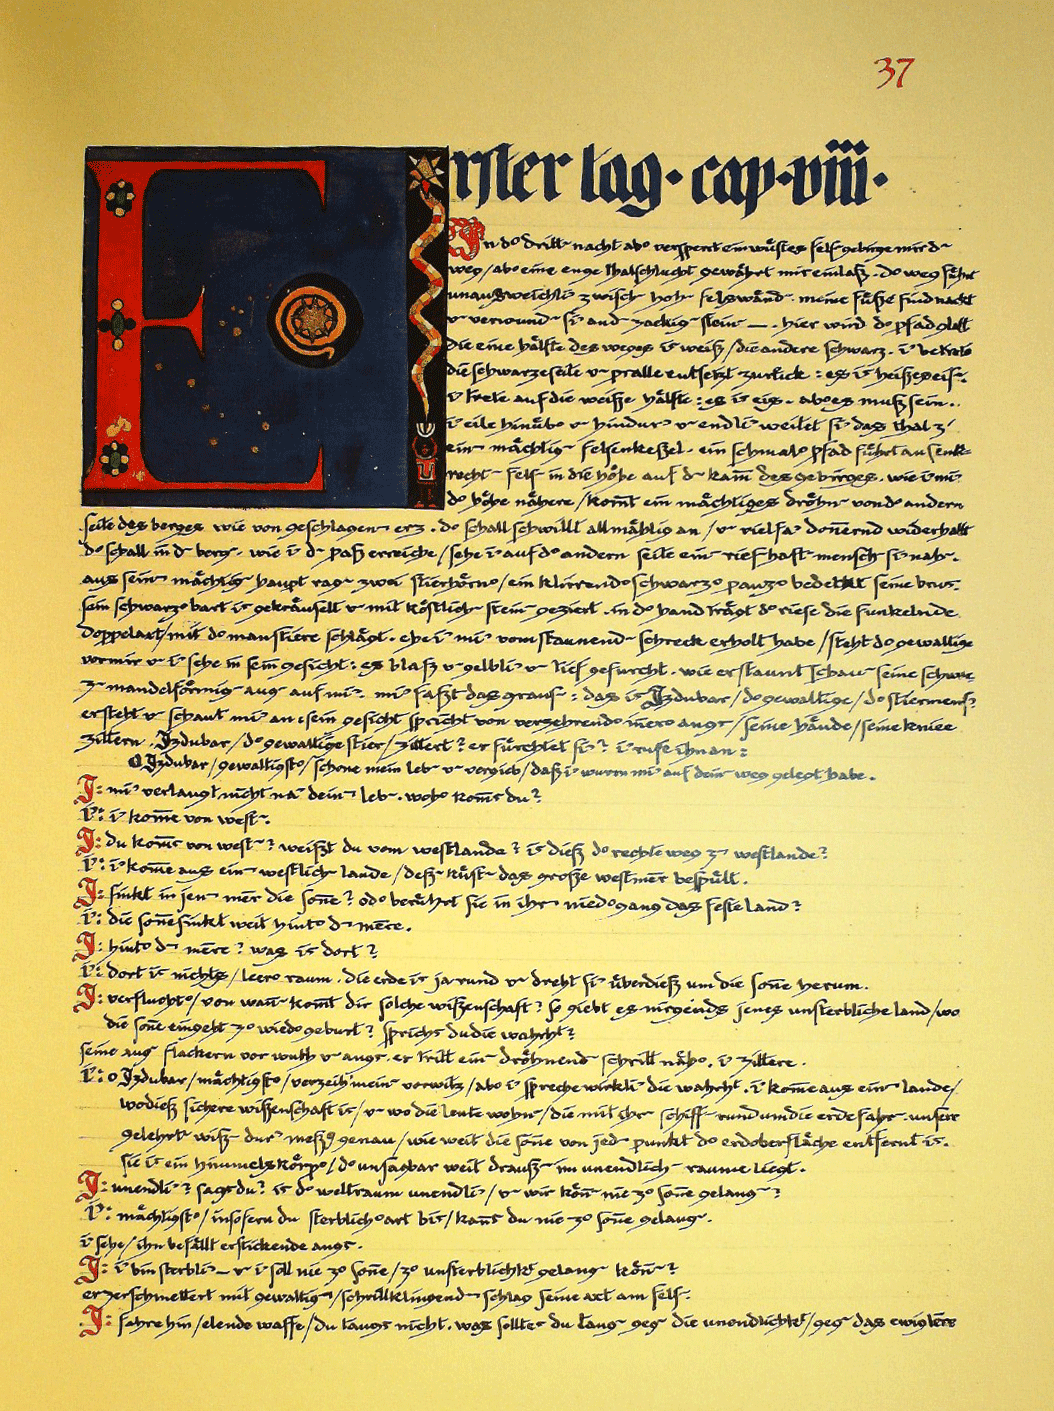 37
Erster tag · cap · viii ·
In d° dritt‾ nacht ab° versperrt ein wüstes fels gebirge mir d‾
weg / ab° eine enge thalschlucht gewährt mir einlaß . d° weg führt
unausweichli' zwisch‾ hoh‾ felswänd‾ . meine füße sind nackt
u‾ verwund‾ si' an d‾ zackig‾ stein‾ — . hier wird d° pfad glatt
die eine hälfte des weges is weiß / die andere schwarz . i' betrete
die schwarze seite u‾ pralle entsetzt zurück : es is heißes eis‾ .
i' trete auf die weiße hälfte : es is eis . ab° es muß sein .
i' eile hinüb° u‾ hindur' u‾ endli' weitet si' das thal z'
ein‾ mächtig‾ felsenkeßel . ein schmal° pfad führt an senk=
recht‾ fels‾ in die höhe auf d‾ kam̄ des gebirges . wie i' mi'
d° höhe nähere / kom̄t ein mächtiges dröhn‾ von d° andern
seite des berges wie von geschlagen‾ erz . d° schall schwillt allmählig an / u‾ vielfa' don̄ernd widerhallt
d° schall in d‾ berg‾ . wie i' d‾ paß erreiche / sehe i' auf d° andern seite ein‾ rieshaft‾ mensch‾ si' nah‾ .
aus sein‾ mächtig‾ haupt rag‾ zwei stierhörn° / ein klirrend° schwarz° panz° bedeckt seine brus .
sein schwarz° bart is gekräuselt u‾ mit köstlich‾ stein‾ geziert . in d° hand trägt d° riese die funkelnde
doppelaxt / mit d° man stiere schlägt . ehe i' mi' vom staunend‾ schreck erholt habe / steht d° gewaltige
vor mir u‾ i' sehe in sein gesicht : es blaß u‾ gelbli' u‾ tief gefurcht . wie erstaunt schau‾ seine schwarz‾
mandelförmig‾ aug‾ auf mi' . mi' faßt das graus‾ : das is Izdubar / d° gewaltige / d° stiermens .
er steht u‾ schaut mi' an : sein gesicht spricht von verzehrend° in̄er° angs / seine hände / seine kniee
zittern . Izdubar / d° gewaltige stier / zittert ? er fürchtet si' ? i' rufe ihn an :
O Izdubar / gewaltigst° / schone mein leb‾ u‾ vergieb / daß i' wurm mi' auf dein‾ weg gelegt habe .
I: mi' verlangt nicht na' dein‾ leb‾ . woh° kom̄s du ?
i': i' kom̄e von west‾ .
I: du kom̄s von west‾ ? weißt du vom westlande ? is dieß d° rechte weg z' westlande ?
i': i' kom̄e aus ein‾ westlich‾ lande / deß‾ küst‾ das große westmeer bespült .
I: sinkt in jen‾ mēr die son̄e ? od° berührt sie in ihr‾ nied°gang das feste land ?
i': die son̄e sinkt weit hint° d‾ mēre .
I: hint° d‾ mēre ? was is dort ?
i': dort is nichts / leer° raum . die erde is ja rund u‾ dreht si' überdieß um die son̄e herum .
I: verflucht° / von wan̄‾ kom̄t dir solche wißenschaft ? so giebt es nirgends jenes unsterbliche land / wo
die son̄e eingeht z° wied°geburt ? sprichs du die wahrht ?
seine aug‾ flackern vor wuth u‾ angs . er tritt ein‾ dröhnend‾ schritt näh° . i' zittere .
i': o Izdubar / mächtigst° / verzeih' mein‾ vorwitz / ab° i' spreche wirkli' die wahrht . i' kom̄e aus ein‾ lande /
wo dieß sichere wißenschaft is / u‾ wo die leute wohn‾ / die mit ihr‾ schiff‾ rund um die erde fahr‾ . unsere
gelehrt‾ wiß‾ dur' meßg genau / wie weit die son̄e von jed‾ punkt d° erdoberfläche entfernt is .
sie is ein him̄elskörp° / d° unsagbar weit drauß‾ im unendlich‾ raume liegt .
I: unendli' ? sags du ? is d° weltraum unendli' / u‾ wir kön̄‾ nie z° son̄e gelang‾ ?
i': mächtigst° / insofern du sterblich° art bis / kan̄s du nie z° son̄e gelang‾ .
i' sehe / ihn befällt erstickende angs .
I: i' bin sterbli' — u‾ i' soll nie z° son̄e / z° unsterblichkt gelang‾ kön̄‾ ?
er zerschmettert mit gewaltig‾ / schrillklingend‾ schlag seine axt am fels‾ .
I: fahre hin / elende waffe / du taugs nicht . was solltes du taug‾ geg‾ die unendlichkt / geg‾ das ewiglēre